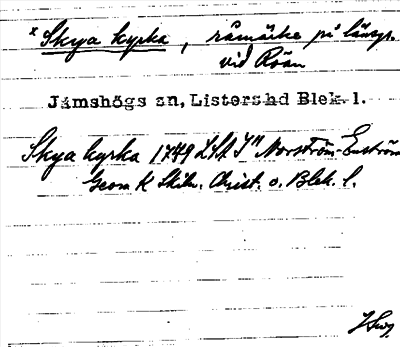 x Skya kyrka, råmärke på länsgr.
vid Röån
Jämshögs sn, Listers hd Blek. l.
Skya kyrka 1749 LSA Norström-Enström
Geom K Skån. Christ. o. Blek. l.